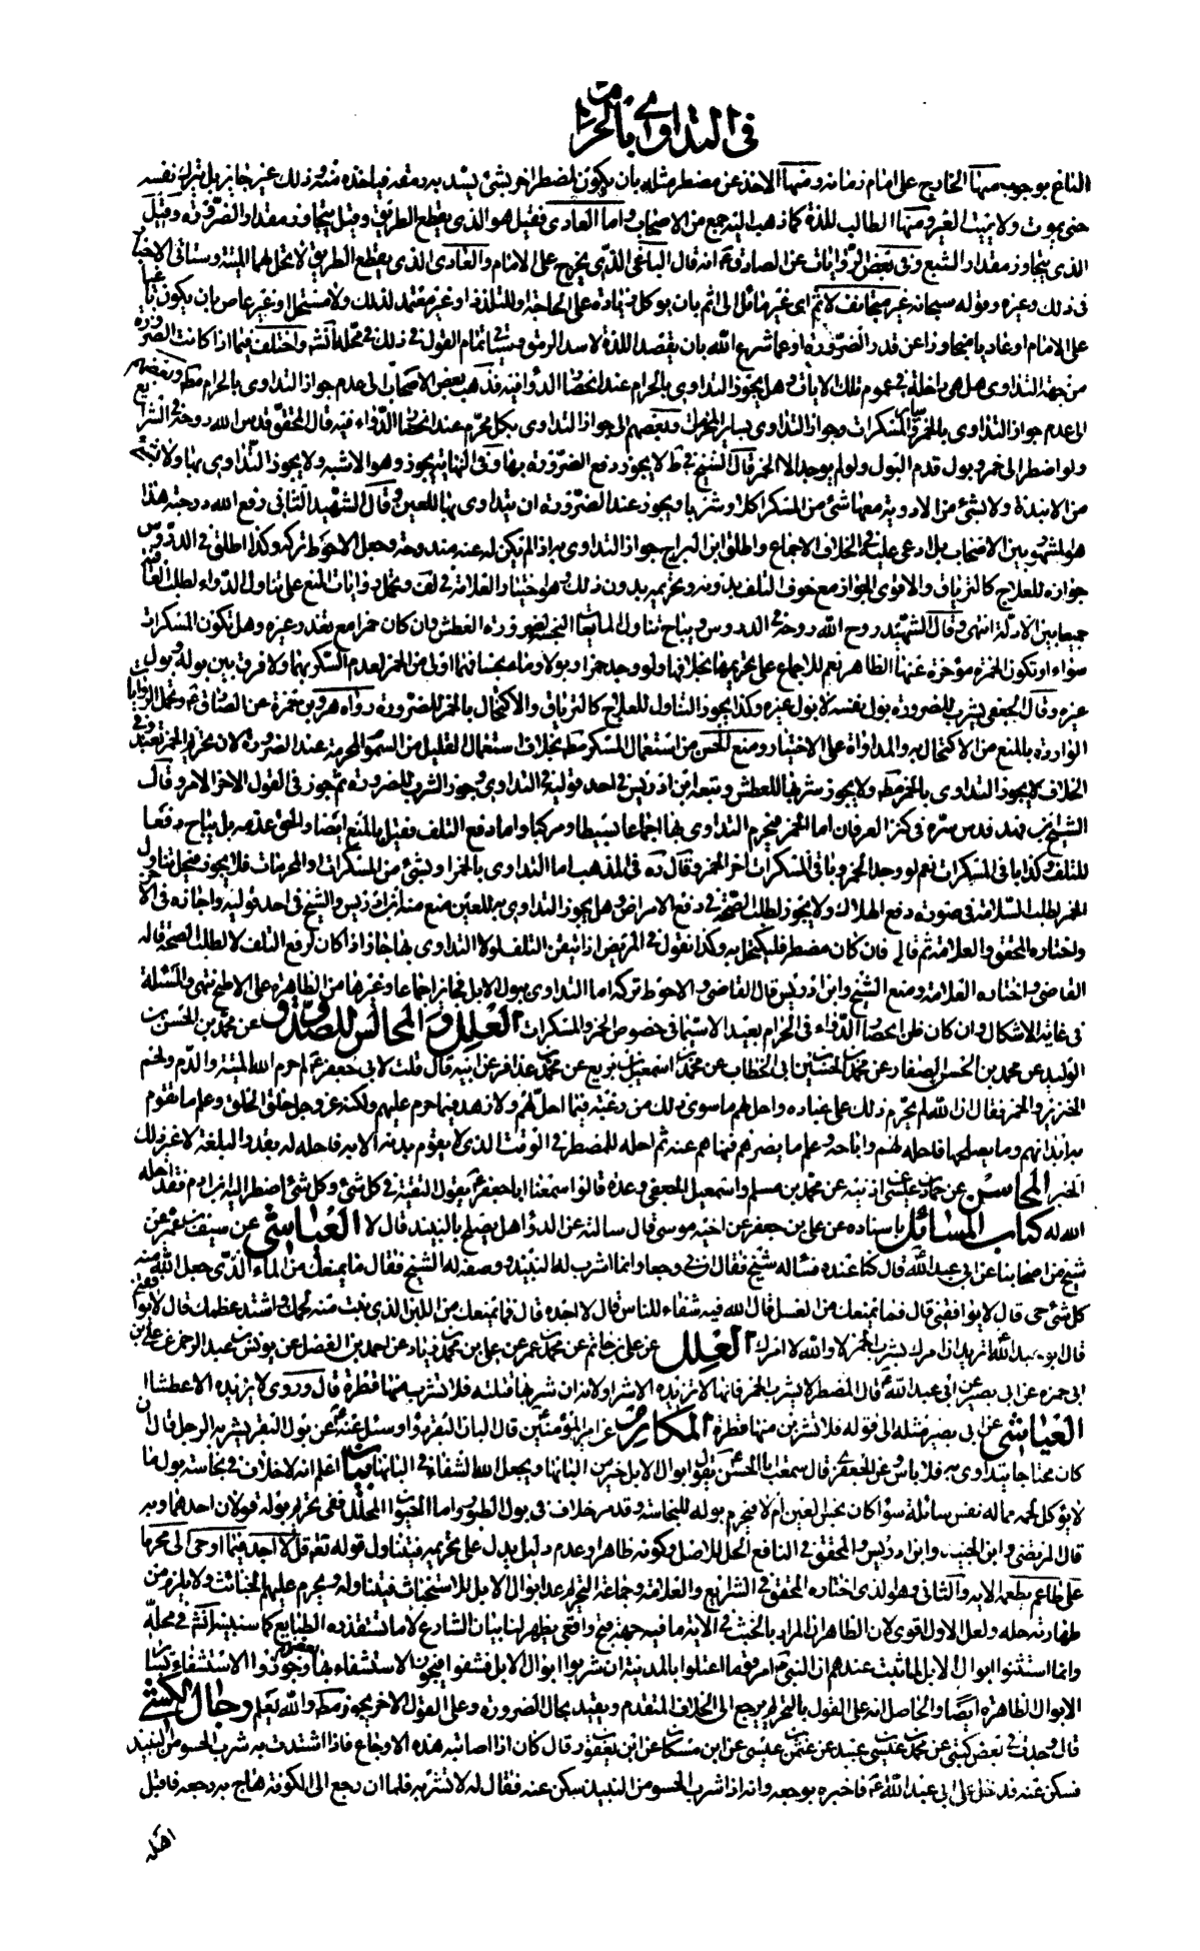 في التداوي بالحرام
الباغي بوجوه منها الخارج على امام زمانه ومنها الاخذ عن مضطر مثله بان يكون لمضطر اخر شئ يسد به رمقه فياخذه منه وذلك غير جايز بل يترك نفسه
حتى يموت ولا يميت الغير ومنها الطالب للذة كما ذهب اليه جمع من الاصحاب واما العادي فقيل هو الذي يقطع الطريق وقيل يتجاوز مقدار الضرورة وقيل
الذي يتجاوز مقدار الشبع وفي بعض الروايات عن الصادق ع انه قال الباغي الذي يخرج على الامام والعادي الذي يقطع الطريق لا يحل لهما الميتة وستاتي الاخبار
في ذلك وغيره وقوله سبحانه غير متجانف لاثم اي غير مائل الى اثم بان ياكل زيادة على الحاجة او للتلذذ او غير متعمد لذلك ولا مستحل او غير عاص بان يكون باغيا
على الامام او عاديا متجاوزا عن قدر الضرورة او عما شرع الله بان يقصد اللذة لا سد الرمق وسياتي تمام القول في ذلك في محله انش واختلف فيما اذا كانت الضرورة
من جهة التداوي هل هي داخلة في عموم تلك الايات وهل يجوز التداوي بالحرام عند انحصار الدواء فيه فذهب بعض الاصحاب الى عدم جواز التداوي بالحرام مط وبعضهم
الى عدم جواز التداوي بالخمر وساير المسكرات وجواز التداوي بساير المحرمات وبعضهم الى جواز التداوي بكل محرم عند انحصار الدواء فيه قال المحقق قدس الله روحه في الشرايع
ولو اضطر الى خمر وبول قدم البول ولو لم يوجد الا الخمر قال الشيخ في ط لا يجوز دفع الضرورة بها وفي النهاية يجوز وهو الاشبه ولا يجوز التداوي بها ولا بشئ
من الانبذة ولا بشئ من الادوية معها شئ من المسكر اكلا وشربا ويجوز عند الضرورة ان يتداوى بها للعين وقال الشهيد الثاني رفع الله درجته هذا
هو المشهور بين الاصحاب بل ادعى عليه في الخلاف الاجماع واطلق ابن البراج جواز التداوي به اذا لم يكن له عنه مندوحة وجعل الاحوط تركه وكذا اطلق في الدروس
جوازه للعلاج كالترياق والاقوى الجواز مع خوف التلف بدونه وتحريمه بدون ذلك وهو اختيار العلامة في لف وتحمل روايات المنع على تناول الدواء لطلب العافية
جمعا بين الادلة انتهى وقال الشهيد روح الله روحه في الدروس ويباح تناول المايعات النجسة لضرورة العطش وان كان خمرا مع تعذر غيره وهل تكون المسكرات
سواء او تكون الخمرة مؤخرة عنها الظاهر نعم للاجماع على تحريمها بخلافها ولو وجد خمرا وبولا وماء نجسا فهما اولى من الخمر لعدم السكر بهما ولا فرق بين بوله وبول
غيره وقال الجعفي يشرب للضرورة بول نفسه لا بول غيره وكذا يجوز التناول للعلاج كالترياق والاكتحال بالخمر للضرورة رواه هرون بن حمزة عن الصادق ع وتحمل الروايات
الواردة بالمنع من الاكتحال به والمداواة على الاختيار ومنع الحسن من استعمال المسكر مط بخلاف استعمال القليل من السموم المحرمة عند الضرورة لان تحريم الخمر تعبد وفي
الخلاف لا يجوز التداوي بالخمر مط ولا يجوز شربها للعطش وتبعه ابن ادريس في احد قوليه في التداوي وجوز الشرب للضرورة ثم جوز في القول الاخر الامرين وقال
الشيخ بن فهد قدس سره في كنز العرفان اما الخمر فيحرم التداوي بها اجماعا بسيطا ومركبا واما دفع التلف فقيل بالمنع ايضا والحق عدمه بل يباح دفعا
للتلف وكذا باقي المسكرات نعم لو وجد الخمر وباقي المسكرات اخر الخمر وقال ره في المذهب اما التداوي بالخمر او بشئ من المسكرات او المحرمات فلا يجوز فيحل تناول
الخمر لطلب السلامة في صورة دفع الهلاك ولا يجوز لطلب الصحة في دفع الامراض وهل يجوز التداوي به للعين منع منه ابن ادريس والشيخ في احد قوليه واجازه في الاخر
واختاره المحقق والعلامة ثم قال فان كان مضطرا فليكتحل به وكذا نقول في المريض اذا تيقن التلف لولا التداوي بها جاز اذا كان لدفع التلف لا لطلب الصحة قاله
القاضي واختاره العلامة ومنع الشيخ وابن ادريس قال القاضي والاحوط تركه اما التداوي ببول الابل فجايز اجماعا وغيرها من الطاهرة على الاصح انتهى والمسئلة
في غاية الاشكال وان كان ظن انحصار الدواء في الحرام بعيدا لاسيما في خصوص الخمر والمسكرات العلل و المجالس للصدوق عن محمد بن الحسن بن
الوليد عن محمد بن الحسن الصفار عن محمد بن الحسين بن ابي الخطاب عن محمد بن اسمعيل بن بزيع عن محمد بن عذافر عن ابيه قال قلت لابي جعفر ع لم حرم الله الميتة والدم ولحم
الخنزير والخمر فقال ان الله لم يحرم ذلك على عباده واحل لهم ما سوى ذلك من رغبته فيما احل لهم ولا زهد فيما حرم عليهم ولكنه عز وجل خلق الخلق وعلم ما تقوم
به ابدانهم وما يصلحها فاحله لهم واباحه وعلم ما يضرهم فنهاهم عنه ثم احله للمضطر في الوقت الذي لا يقوم بدنه الا به فاحله له بقدر البلغة لا غير ذلك
الخبر المحاسن عن حماد بن عيسى عن اذينة عن محمد بن مسلم واسمعيل الجعفي وعدة قالوا سمعنا ابا جعفر ع يقول التقية في كل شئ وكل شئ اضطر اليه ابن ادم فقد احله
الله له كتاب المسائل باسناده عن علي بن جعفر عن اخيه موسى قال سالته عن الدواء هل يصلح بالنبيذ قال لا العياشي عن سيف بن عميرة عن
شيخ من اصحابنا عن ابي عبد الله قال كنا عنده فسأله شيخ فقال ان بي وجعا وانما اشرب له النبيذ ووصفه له الشيخ فقال ما يمنعك من الماء الذي جعل الله منه
كل شئ حي قال لا يوافقني قال فما يمنعك من العسل قال الله فيه شفاء للناس قال لا اجده قال فما يمنعك من اللبن الذي نبت منه لحمك واشتد عظمك قال لا يوافقني
قال ابو عبد الله ع تريد ان امرك بشرب الخمر لا والله لا امرك العلل عن علي بن حاتم عن محمد بن عمر عن علي بن محمد بن زياد عن احمد بن الفضل عن يونس بن عبد الرحمن عن علي بن
ابي حمزة عن ابي بصير عن ابي عبد الله ع قال المضطر لا يشرب الخمر فانها لا تزيده الا شرا ولانه ان شربها قتلته فلا تشربن منها قطرة قال وروي لا يزيده الا عطشا
العياشي عن ابي بصير مثله الى قوله فلا تشربن منها قطرة المكارم عن امير المؤمنين قال البان البقر دواء وسئل عنه ع عن بول البقر يشربه الرجل قال ان
كان محتاجا يتداوى به فلا باس وعن الجعفري قال سمعت ابا الحسن ع يقول ابوال الابل خير من البانها ويجعل الله الشفاء في البانها بيان اعلم انه لا خلاف في نجاسة بول ما
لا يؤكل لحمه مما له نفس سائلة سواء كان نجس العين ام لا فيحرم بوله للنجاسة وقد مر خلاف في بول الطيور واما الحيوان المحلل ففي تحريم بوله قولان احدهما وبه
قال المرتضى وابن الجنيد وابن ادريس والمحقق في النافع الحل للاصل وكونه طاهرا وعدم دليل يدل على تحريمه فيتناول قوله تعالى قل لا اجد فيما اوحي الي محرما
على طاعم يطعمه الاية والثاني وهو الذي اختاره المحقق في الشرايع والعلامة وجماعة التحريم عدا بوال الابل للاستخباث فيتناوله ويحرم عليهم الخبائث ولا يلزم من
طهارته حله ولعل الاول اقوى لان الظاهر ان المراد بالخبث في الاية ما فيه جهة قبح واقعي يظهر لنا ببيان الشارع لا ما تستقذره الطبايع كما سنبينه انش في محله
وانما استثنوا ابوال الابل لما ثبت عندهم ان النبي ص امر قوما اعتلوا بالمدينة ان شربوا ابوال الابل فشفوا فيجوز الاستشفاء بها وبعضهم جوزوا الاستشفاء بساير
الابوال الطاهرة ايضا والحاصل انه على القول بالتحريم يرجع الى الخلاف المتقدم ويقيد بحال الضرورة وعلى القول الاخر يجوز مط والله يعلم رجال الكشي
قال وجدت في بعض كتبي عن محمد بن عيسى بن عبيد عن عثمن بن عيسى عن ابن مسكان عن ابن ابي يعفور قال كان اذا اصابته هذه الاوجاع فاذا اشتدت به شرب الحسو من النبيذ
فسكن عنه فدخل على ابي عبد الله ع فاخبره بوجعه وانه اذا شرب الحسو من النبيذ سكن عنه فقال له لا تشربه فلما ان رجع الى الكوفة هاج به وجعه فاقبل
اهله